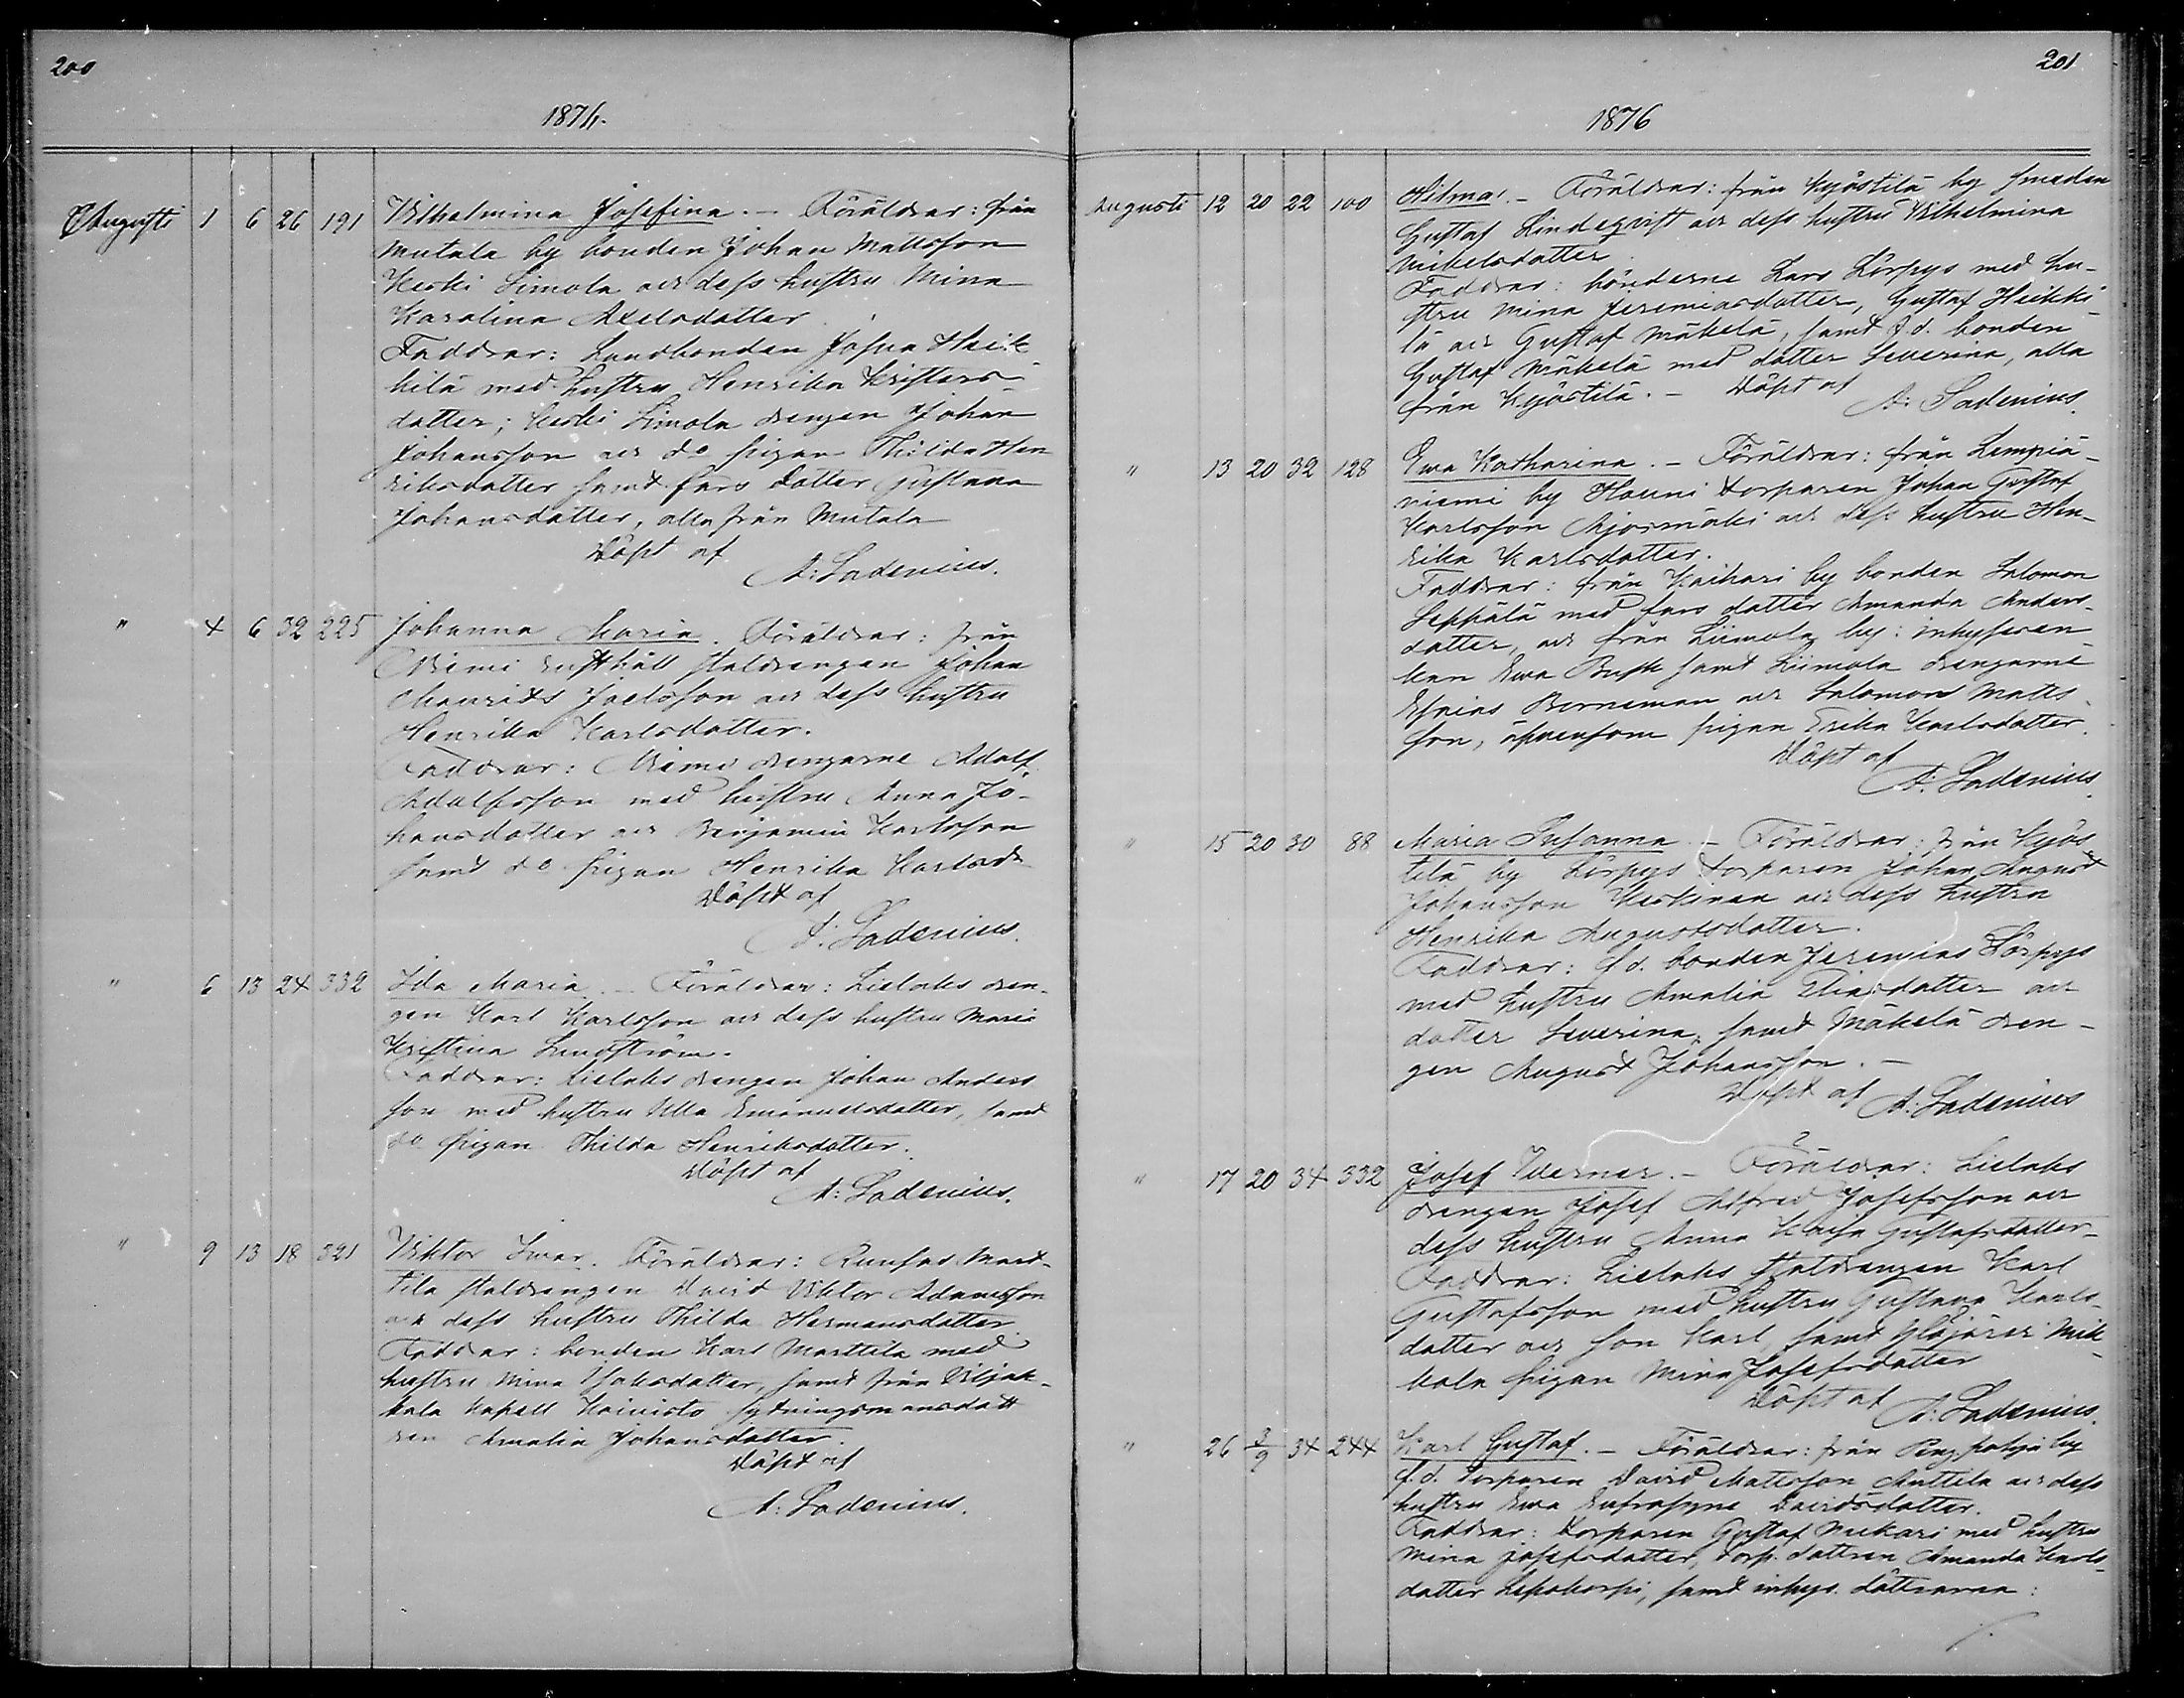 200
1876.
Augusti 1 6 26 191 Wilhelmina Josefina. – Föräldrar: från
Mutala by bonden Johan Mattsson
Keski Simola och dess hustru Mina
Karolina Axelsdotter.
Faddrar: Landbonden Josua Heik-
kilä med hustru Henrika Kristers-
dotter; Keski Simola drengen Johan
Johansson och do pigan Thilda Hen
riksdotter samt fars dotter Gustava
Johansdotter, alla från Mutala
Döpt af
A: Ladenius.
" 4 6 32 225 Johanna Maria. Föräldrar: från
Niemi rusthåll staldrengen Johan
Maurits Joelsson och dess hustru
Henrika Karlsdotter.
Faddrar: Niemi drengarne Adolf
Adolfsson med hustru Anna Jo-
hansdotter och Benjamin Karlsson
samt do pigan Henrika Karlsdr
Döpt af
A: Ladenius.
" 6 13 24 332 Ida Maria. – Föräldrar: Lielaks dren-
gen Karl Karlsson och dess hustru Maria
Kristina Lundström.
Faddrar: Lielaks drengen Johan Anders
son med hustru Ulla Emanuelsdotter, samt
do pigan Thilda Henriksdotter.
Döpt af
A: Ladenius.
" 9 13 18 321 Viktor Ivar. Föräldrar: Mart-
tila staldrengen David Viktor Adamsson
och dess hustru Thilda Hermansdotter
Faddrar: bonden Karl Marttila med
hustru Mina Isaksdotter, samt från Viljak-
kala kapell Koivisto sytningsmansdott
ren Amalia Johansdotter.
Döpt af
A: Ladenius.
201
1876
Augusti 12 20 22 100 Hilma. – Föräldrar: från Kyöstilä by smeden
Gustaf Lindeqvist och dess hustru Vilhelmina
Mikelsdotter.
Faddrar: bönderne Lars Lörpys med hu-
stru Mina Jeremiasdotter, Gustaf Heikki-
lä och Gustaf Mäkelä, samt f.d. bonden
Gustaf Mäkelä med dotter Severina, alla
från Kyöstilä. – Döpt af
A: Ladenius.
" 13 20 32 128 Ewa Katharina. – Föräldrar: från Lempiä-
niemi by Hauni torparen Johan Gustaf
Karlsson och dess hustru Hen-
rika Karlsdotter.
Faddrar: från Kaihari by bonden Salomon
Seppälä med fars dotter Amanda Anders-
dotter, och från Liimola by: inhyseen-
kan Ewa Busk samt Liimola drengarne
Esaias Borneman och Salomon Matts-
son, äfvensom pigan Erika Karlsdotter.
Döpt af
A: Ladenius.
" 15 20 30 88 Maria Susanna. – Föräldrar: från Kyös-
tilä by Lörpys torparen Johan August
Johansson Keskinen och dess hustru
Henrika Augustsdotter.
Faddrar: f.d. bonden Jeremias Lörpys
med hustru Amalia Eliasdotter och
dotter Severina, samt Mäkelä dren-
gen August Johansson. –
Döpt af A: Ladenius
" 17 20 34 332 Josef Werner. – Föräldrar: Lielaks
drengen Josef Alfred Josefsson och
dess hustru Anna Kajsa Gustafsdotter
Faddrar: Lielaks staldrengen Karl
Gustafsson med hustru Gustava Karls-
dotter och son Karl, samt Ylöjärvi Mik-
kola pigan Mina Josefsdotter
Döpt af A: Ladenius.
" 26 3/9 34 244 Karl Gustaf. – Föräldrar: från by
f.d. torparen David Mattsson Anttila och dess
hustru Ewa Eufrosyne Davidsdotter.
Faddrar: torparen Gustaf med hustru
Mina Josefsdotter, torp. dottren Amanda Karls-
dotter Lepokorpi, samt inhys. döttrarna: